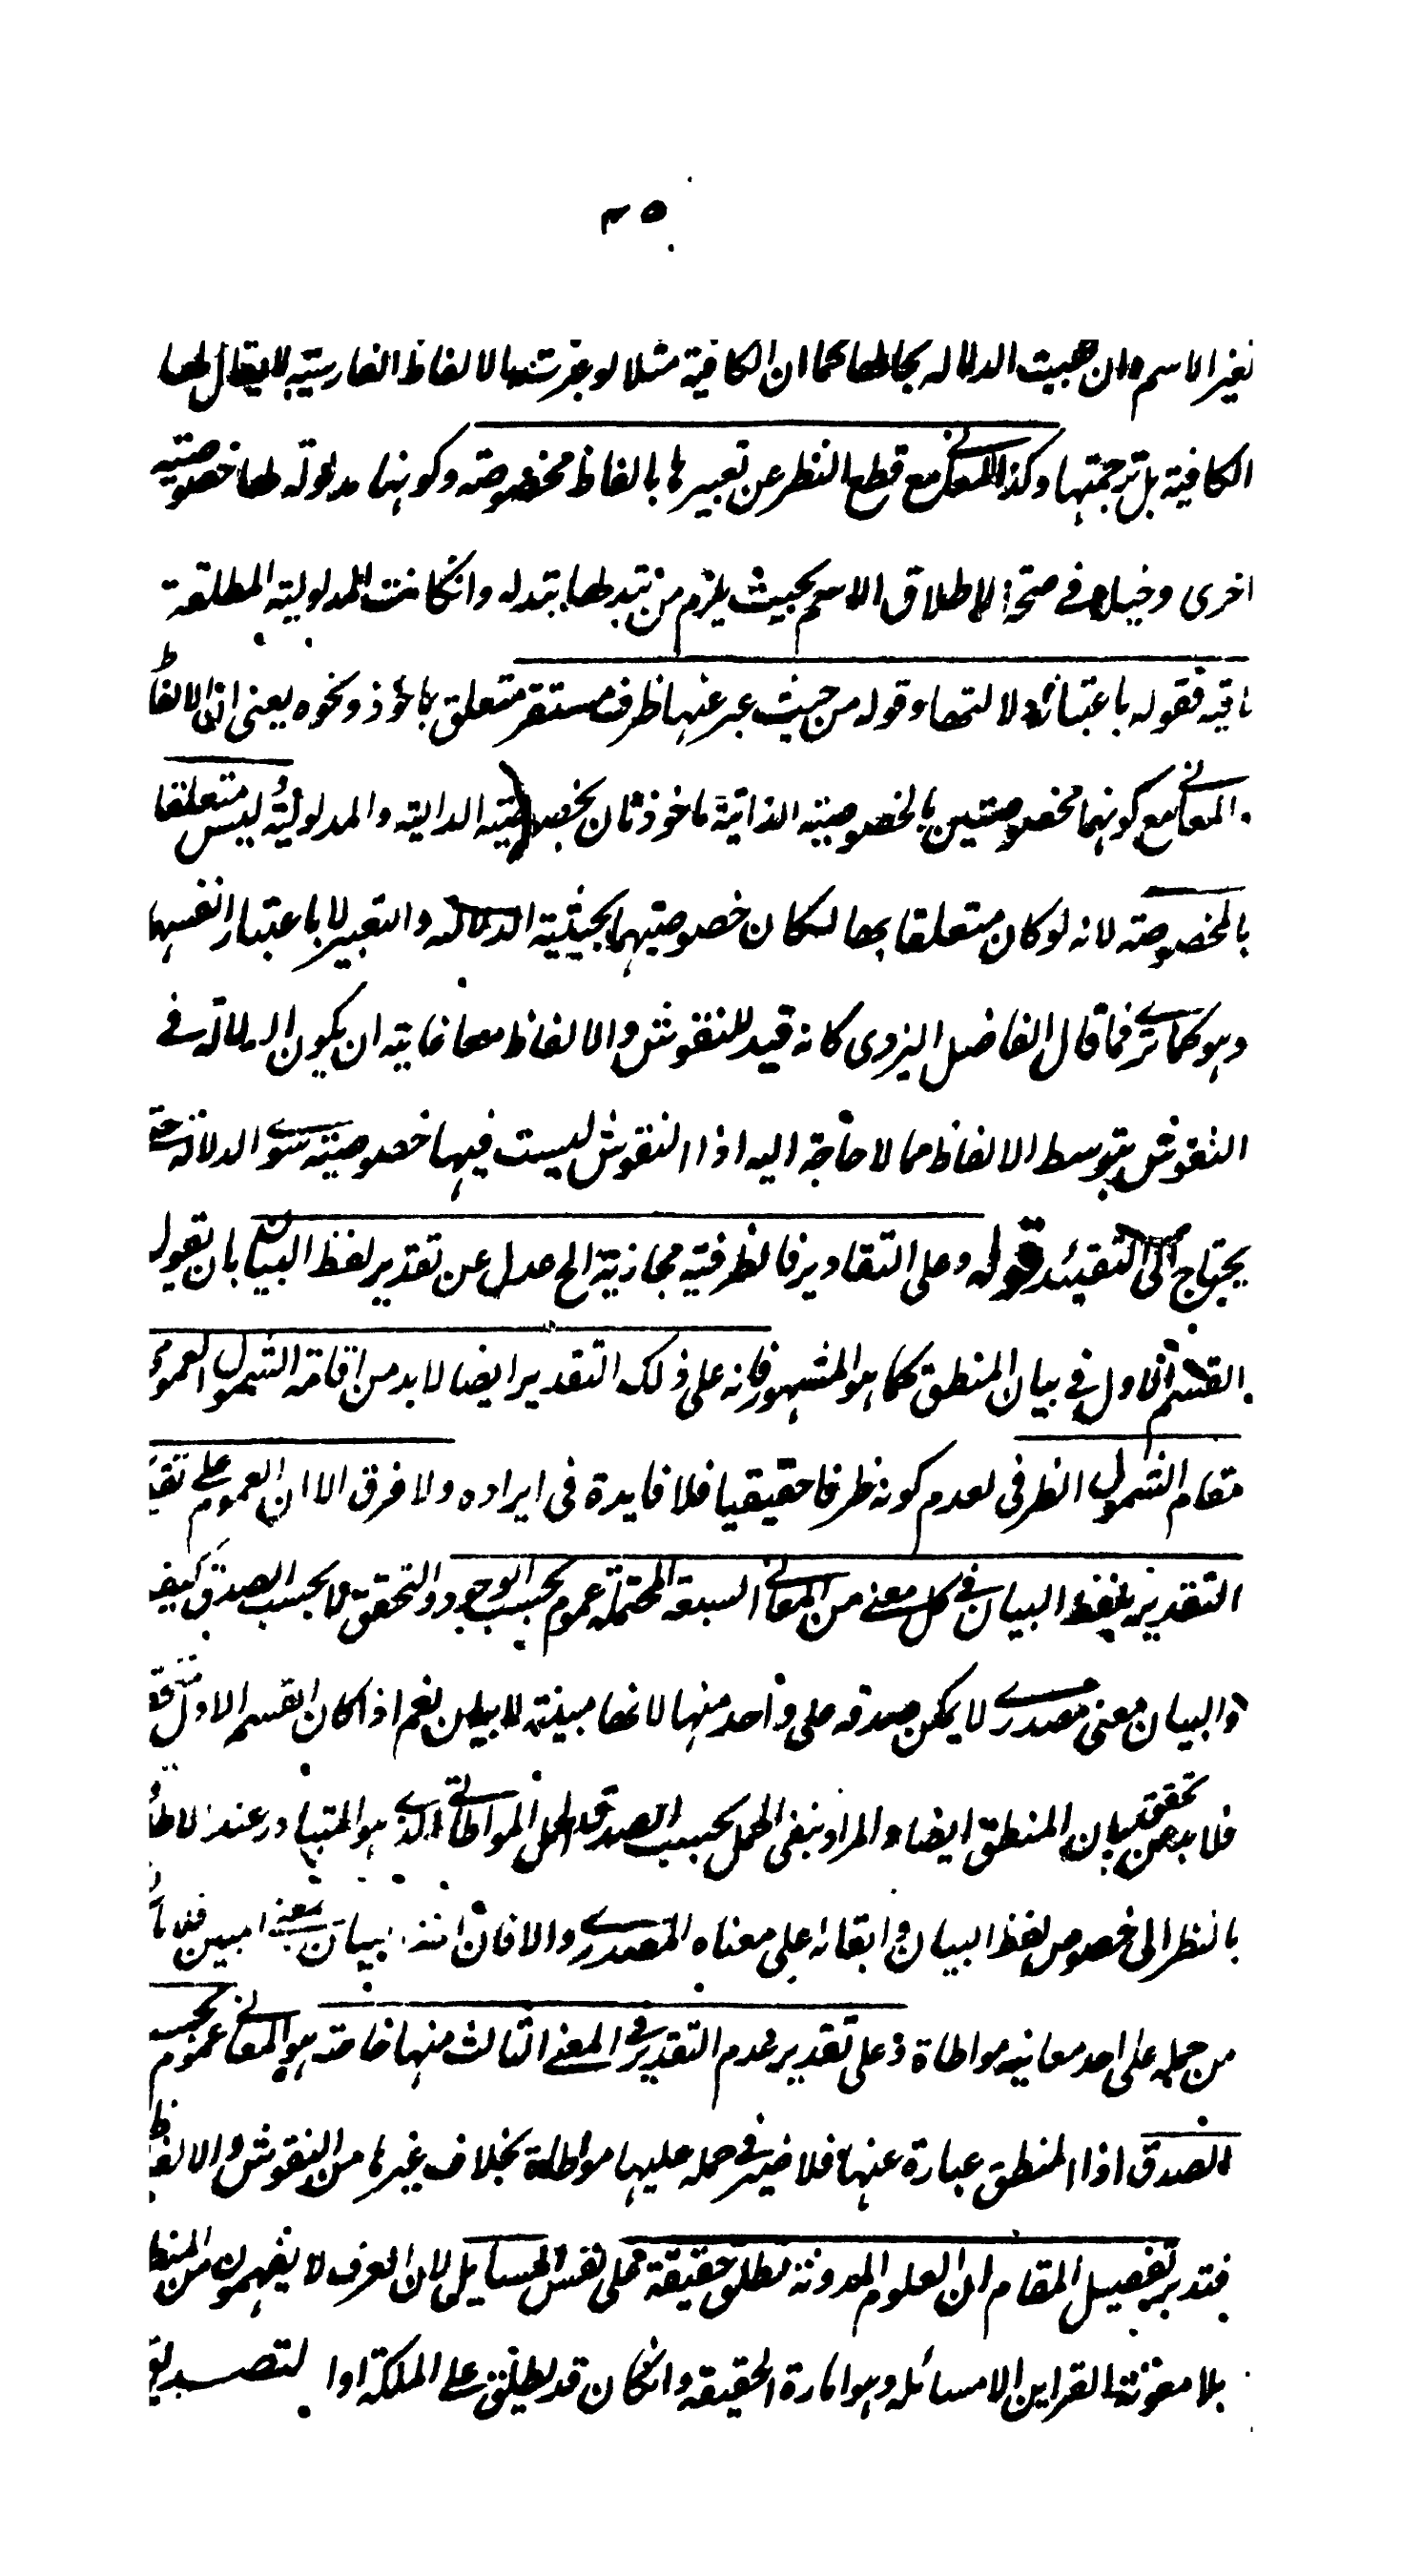 ٣٥
تغير الاسم وان بقيت الدلالة بحالها كما ان الكافية مثلا لو غيرتها لالفاظ الفارسية لا يقال لها
الكافية بل ترجمتها وكذا المعاني مع قطع النظر عن تعبيرها بالفاظ مخصوصة وكونها مدلولة لها خصوصية
اخرى دخيلة في صحة الاطلاق الاسم بحيث يلزم من تبدلها تبدله وانكانت المدلولية المطلقة
باقية فقوله باعتبار دلالتها وقوله من حيث عبر عنها ظرف مستقر متعلق بماخوذ ونحوه يعني ان الالفاظ
والمعاني مع كونهما مخصوصتين بالخصوصية الذاتية ماخوذتان بخصوصية الدالية والمدلولية ليس متعلقا
بالمخصوصة لانه لو كان متعلقا بها لكان خصوصيتهما بحيثية الدلالة والتعبير لا باعتبار انفسها
وهو كما ترى فما قال الفاضل اليزدي كانه قيد للنقوش والالفاظ معا غايته ان يكون الدلالة في
النقوش بتوسط الالفاظ مما لا حاجة اليه اذ النقوش ليست فيها خصوصية سوى الدلالة حتى
يحتاج الى التقييد قوله وعلى التقادير فالظرفية مجازية الخ عدل عن تقدير لفظ البيان بان يقول
القسم الاول في بيان المنطق كما هو المشهور فانه على ذلك التقدير ايضا لابد من اقامة الشمول العمومي
مقام الشمول الظرفي لعدم كونه ظرفا حقيقيا فلا فايدة في ايراده ولا فرق الا ان العموم على تقدير
التقدير بلفظ البيان في كل معنى من المعاني السبعة المحتملة عموم بحسب الوجود والتحقق لا بحسب الصدق كيف
والبيان معنى مصدري لا يمكن صدقه على واحد منها لانها مبينة لا بيان نعم اذا كان القسم الاول متحققا
فلا بد من تحقق بيان المنطق ايضا والمراد بنفي الحمل بحسب الصدق الحمل المواطاتي الذي هو المتبادر عند الاطلاق
بالنظر الى خصوص لفظ البيان وابقائه على معناه المصدري والا فان اخذ البيان بمعنى المبين فلا مانع
من حمله على احد معانيه مواطاة وعلى تقدير عدم التقدير في المعنى الثالث منها خاصة هو المعاني عموم بحسب
الصدق اذ المنطق عبارة عنها فلا ضير في حمله عليها مواطاة بخلاف غيرها من النقوش والالفاظ
فتدبر تفصيل المقام ان العلوم المدونة تطلق حقيقة على نفس المسايل لان العرف لا يفهمون من المنطق
بلا معونة القراين الا مسائله وهو امارة الحقيقة وانكان قد يطلق على الملكة او التصديق